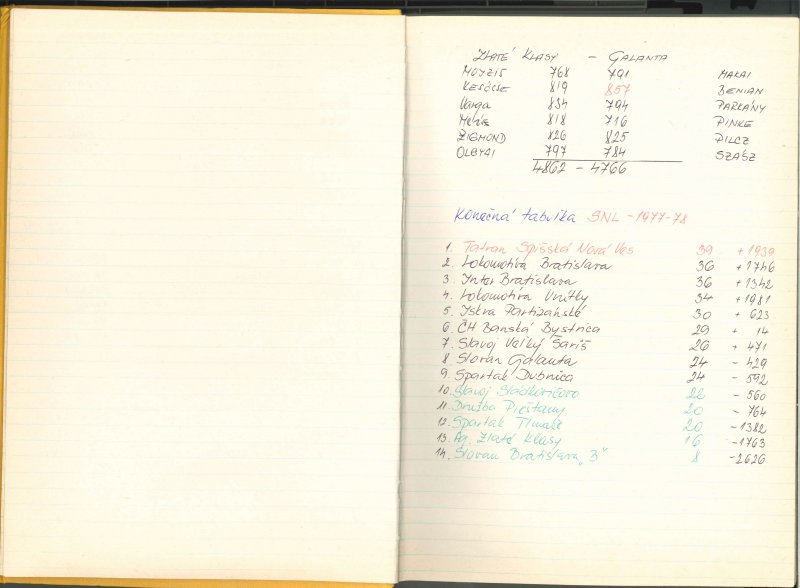 ZLATÉ KLASY – GALANTA
MOYZIS 768 791 MAKAI
819 857 BENIAN
Varga 834 794 PARKÁNY
818 716 PINKE
ŽIGMOND 826 825 PILCZ
OLGYAI 797 784 SZÁSZ
4862 – 4766
Konečná tabulka SNL – 1977-78
1. Tatran Spišská Nová Ves 39 + 1939
2. Lokomotíva Bratislava 36 + 1746
3. Inter Bratislava 36 + 1342
4. Lokomotíva Vrútky 34 + 1981
5. Iskra Partizánské 30 + 623
6. ČH Banská Bystrica 29 + 14
7. Slavoj Velký Šariš 26 + 471
8. Slovan Galanta 24 - 429
9. Spartak Dubnica 24 - 592
10. Slavoj Sládkovičovo 22 - 560
11. Družba Piešťany 20 - 764
12. Spartak Tlmače 20 - 1382
13. Ag. Zlaté Klasy 16 - 1763
14. Slovan Bratislava „B" 8 - 2626